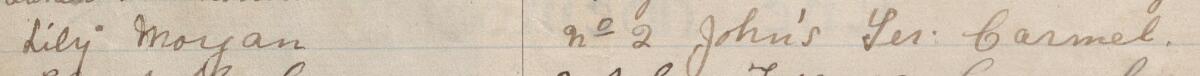 Lily Morgan nº 2 John's Ter. Carmel.